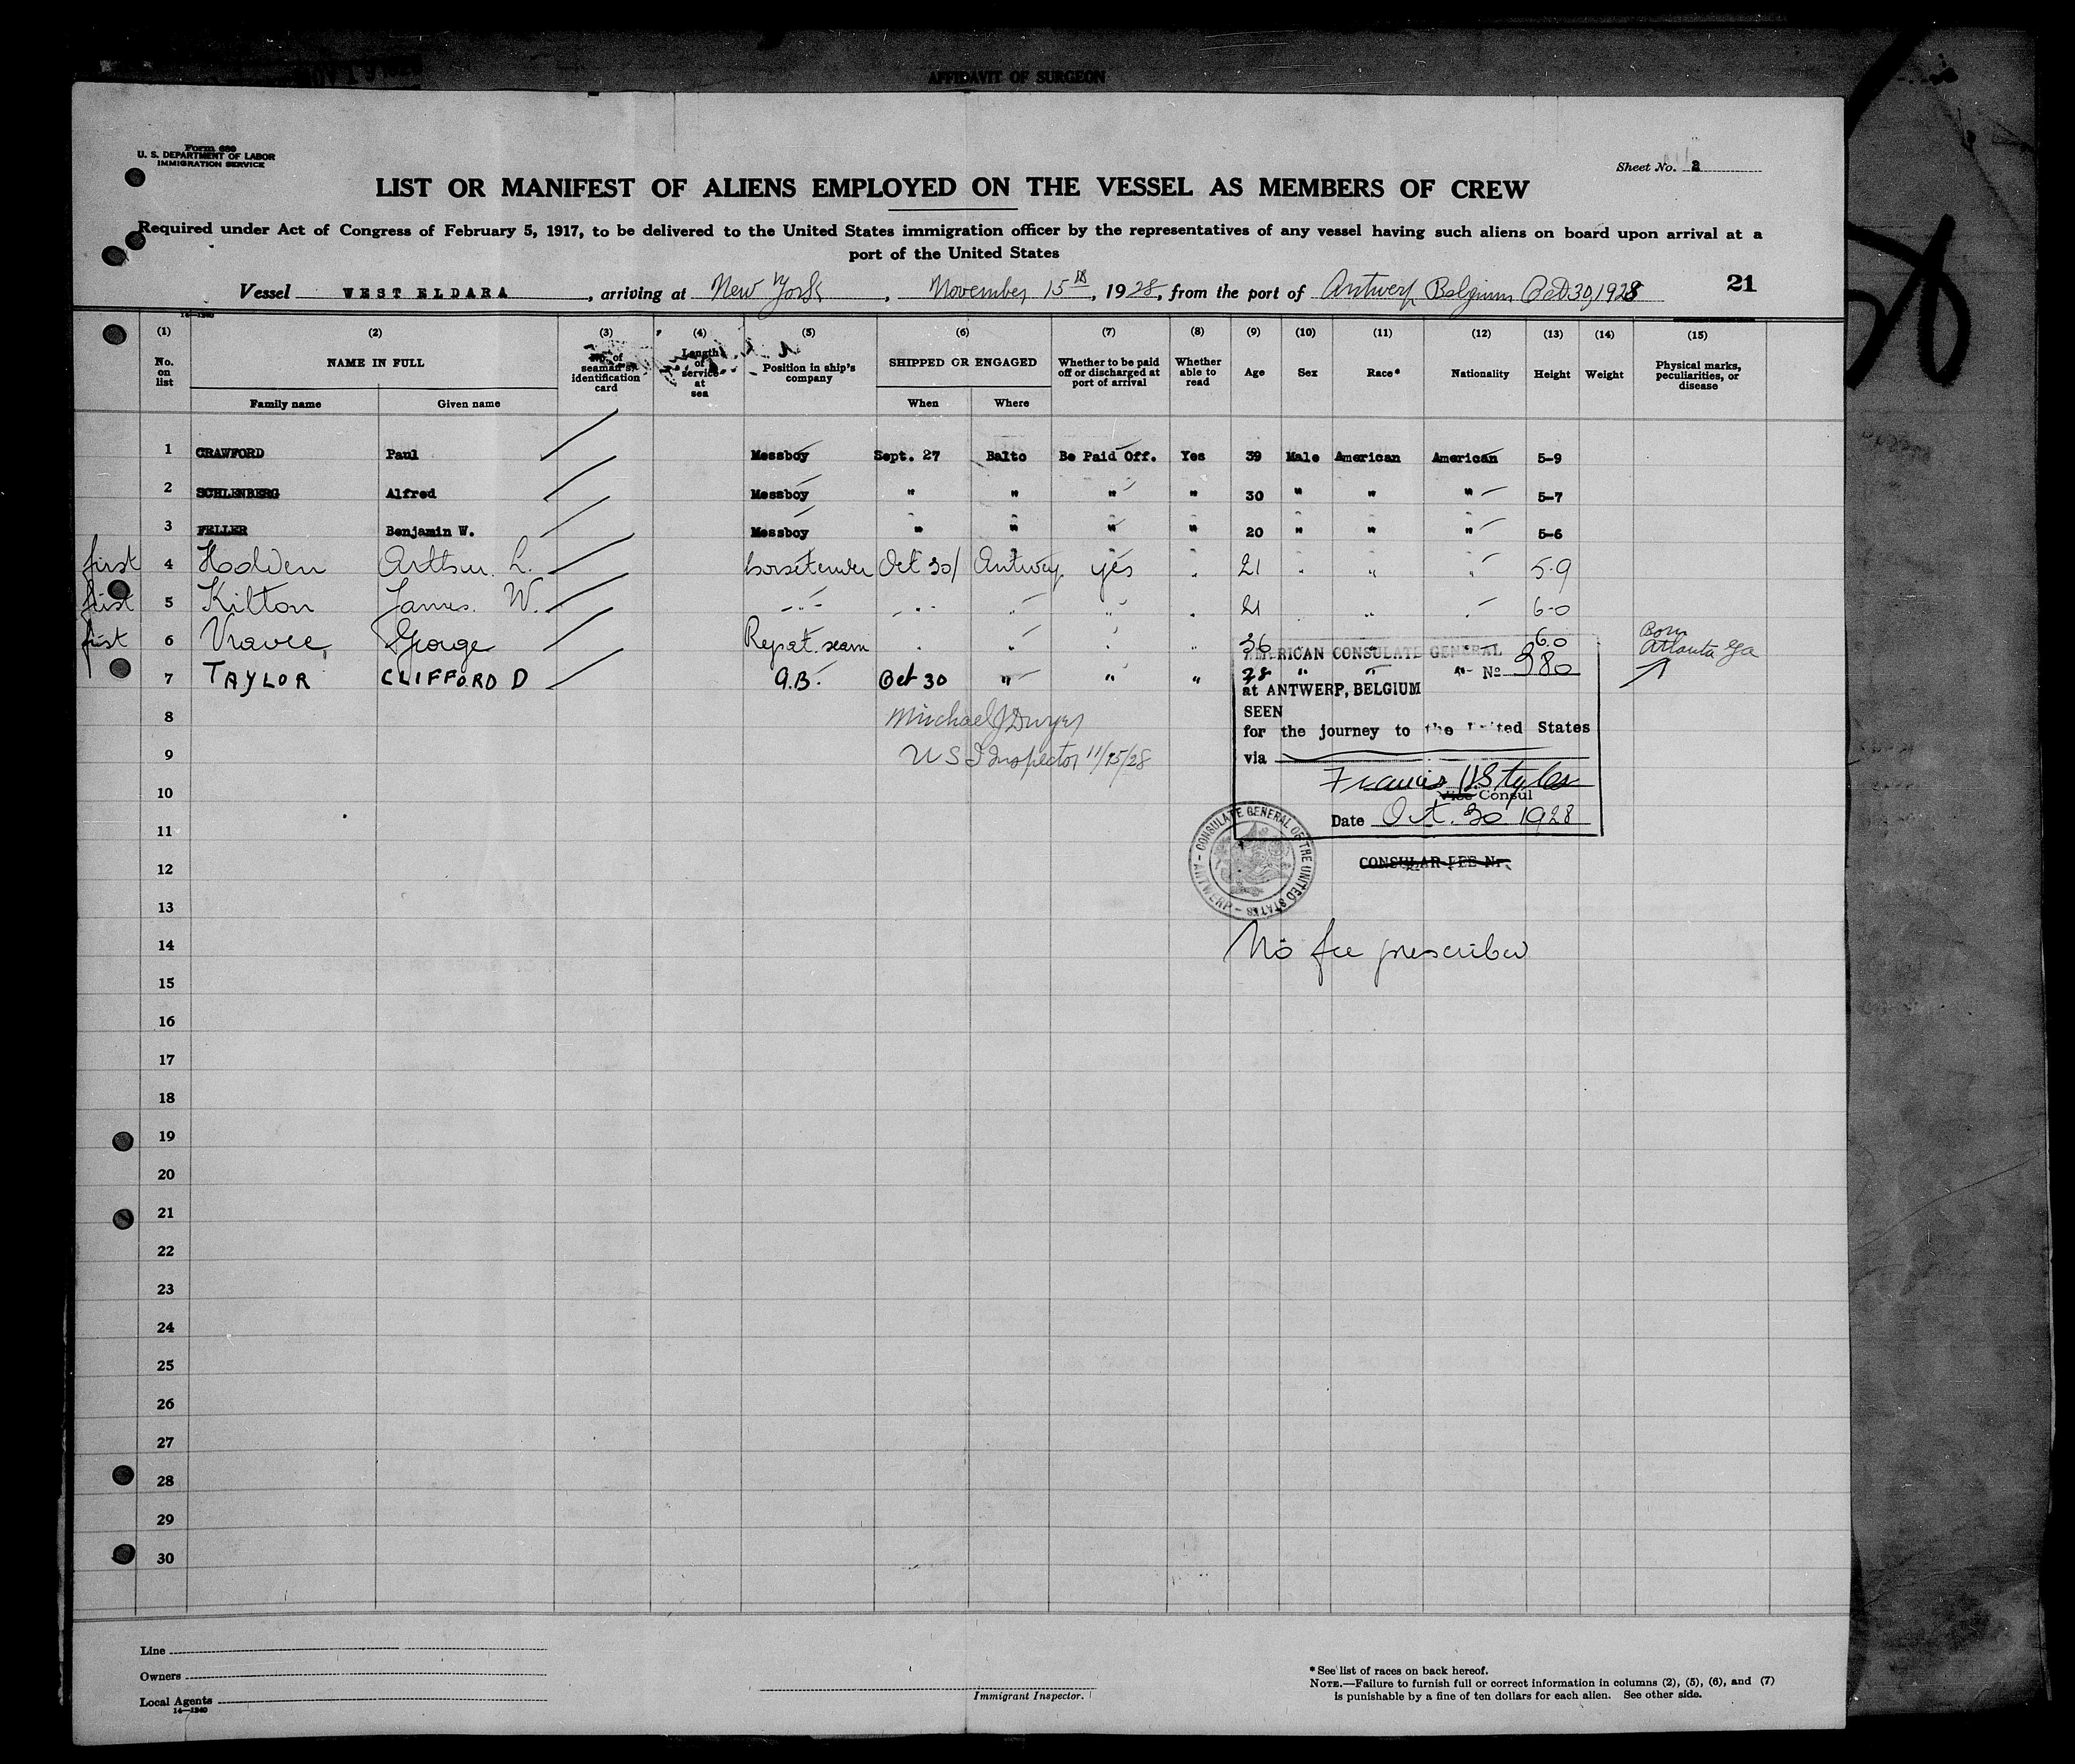 AFFIDAVIT OF SURGEON
Form 680
U. S. DEPARTMENT OF LABOR
IMMIGRATION SERVICE
Sheet No. 2
LIST OR MANIFEST OF ALIENS EMPLOYED ON THE VESSEL AS MEMBERS OF CREW
Required under Act of Congress of February 5, 1917, to be delivered to the United States immigration officer by the representatives of any vessel having such aliens on board upon arrival at a
port of the United States
Vessel WEST ELDARA, arriving at New York, November 15th, 1928, from the port of Antwerp Belgium Oct 30, 1928
21
(1) (2) (3) (4) (5) (6) (7) (8) (9) (10) (11) (12) (13) (14) (15)
No. on list NAME IN FULL No. of seaman's identification card Length of service at sea Position in ship's company SHIPPED OR ENGAGED Whether to be paid off or discharged at port of arrival Whether able to read Age Sex Race* Nationality Height Weight Physical marks, peculiarities, or disease
Family name Given name When Where
1 CRAWFORD Paul Messboy Sept. 27 Balto Be Paid Off. Yes 39 Male American American 5-9
2 SCHLENBERG Alfred Messboy " " " " 30 " " " 5-7
3 FELLER Benjamin W. Messboy " " " " 20 " " " 5-6
first 4 Holden Arthur L. horsetender Oct 30/ Antwerp yes " 21 " " " 5-9
first 5 Kilton James W. " " " " " 21 " " 6-0
first 6 George Repat. seam " " " " 36 " " 6-0 Born Atlanta Ga
7 TAYLOR CLIFFORD D A.B. Oct 30 " " " 28 " " "
AMERICAN CONSULATE GENERAL
No 980
at ANTWERP, BELGIUM
SEEN
for the journey to the United States
via
Francis H Styles
Vice Consul
Date Oct. 30 1928
Michael J Dwyer
U S I Inspector 11/15/28
CONSULATE GENERAL OF THE UNITED STATES - ANTWERP -
CONSULAR FEE Nr.
No fee prescribed
8
9
10
11
12
13
14
15
16
17
18
19
20
21
22
23
24
25
26
27
28
29
30
Line
Owners
Local Agents
14—1240
Immigrant Inspector.
* See list of races on back hereof.
NOTE.—Failure to furnish full or correct information in columns (2), (5), (6), and (7)
is punishable by a fine of ten dollars for each alien. See other side.